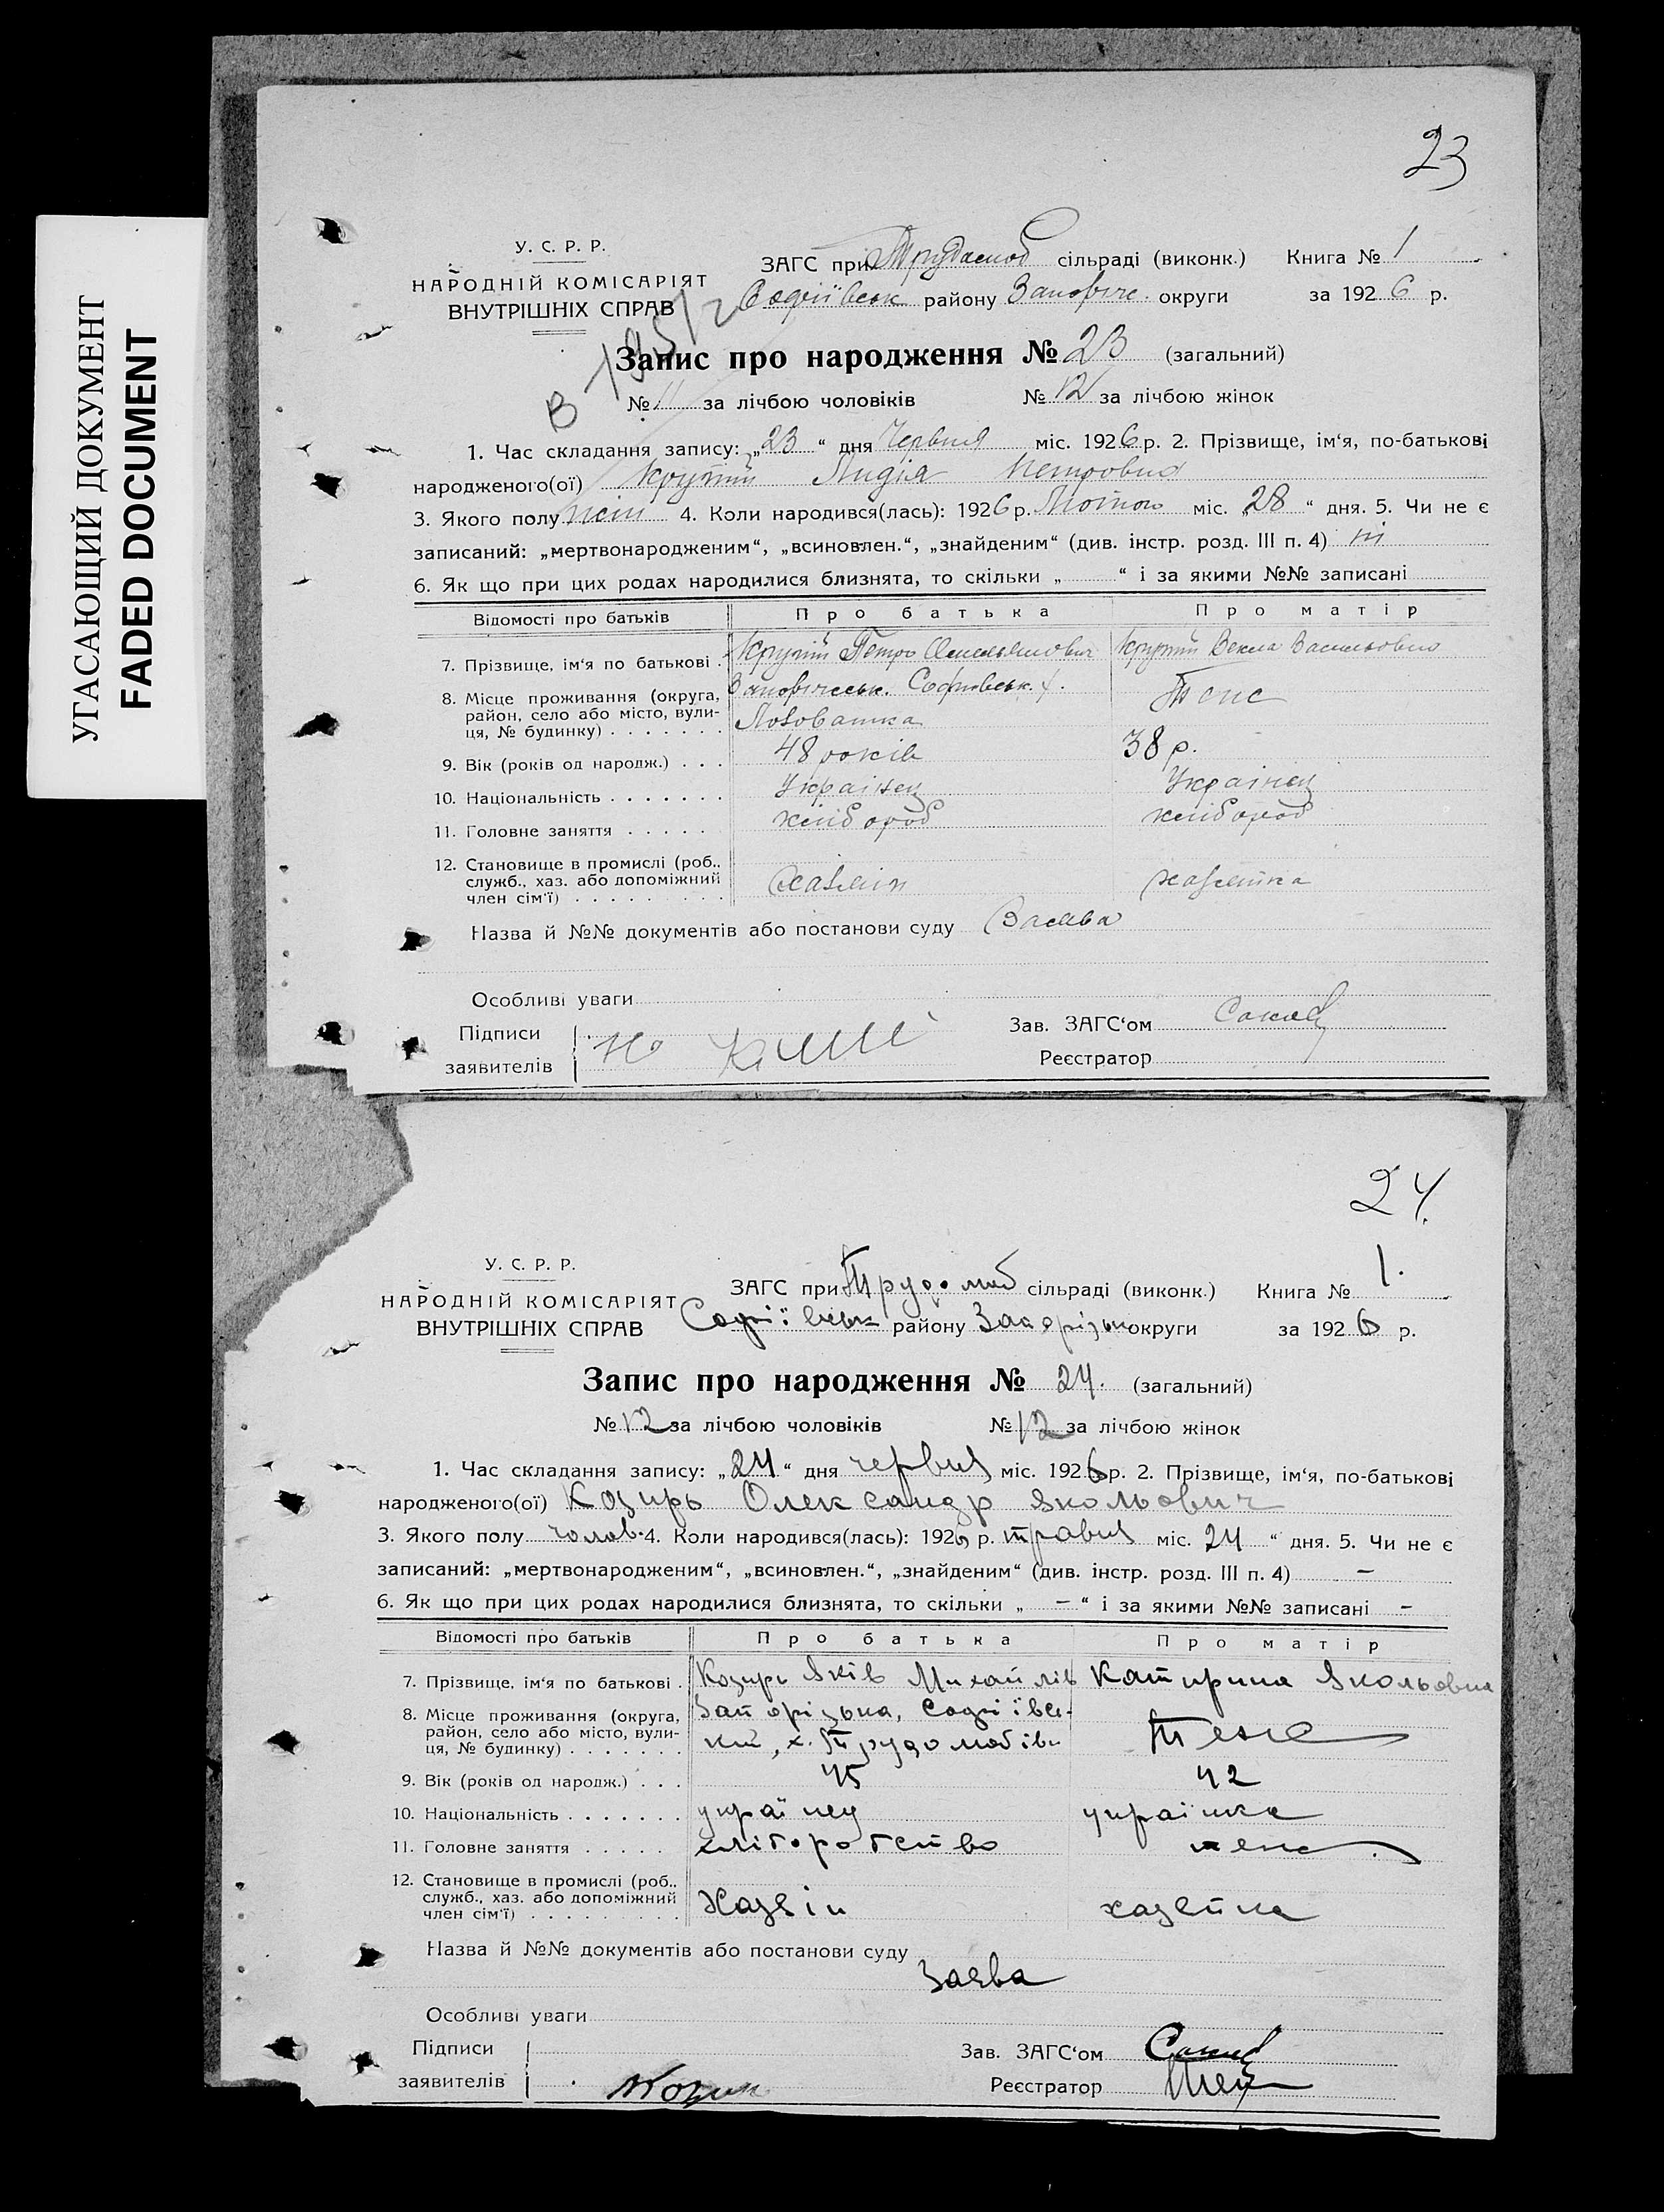 УГАСАЮЩИЙ ДОКУМЕНТ
FADED DOCUMENT
23
У. С. Р. Р.
НАРОДНІЙ КОМІСАРІЯТ
ВНУТРІШНІХ СПРАВ
ЗАГС при сільраді (виконк.) Книга № 1
Софіївськ району округи за 1926 р.
Запис про народження № 23 (загальний)
№ 11 за лічбою чоловіків № 12 за лічбою жінок
В
1. Час складання запису: „23“ дня Червня міс. 1926 р. 2. Прізвище, ім‘я, по-батькові
народженого(ої) Крутій Лидія Петровна
3. Якого полу 4. Коли народився(лась): 1926 р. Лютого міс. „28“ дня. 5. Чи не є
записаний: „мертвонародженим“, „всиновлен.“, „знайденим“ (див. інстр. розд. III п. 4) ні
6. Як що при цих родах народилися близнята, то скільки „ “ і за якими №№ записані
Відомості про батьків Про батька Про матір
7. Прізвище, ім‘я по батькові . Крутій Петро Крутій Векла Васильовна
8. Місце проживання (округа, район, село або місто, вулиця, № будинку) . . . . . . . Софиївськ. х. Лозоватка Теж
9. Вік (років од народж.) . . . 48 років 38 р.
10. Національність . . . . . . . Украінец Украінец
11. Головне заняття . . . . . хлібороб хлібороб
12. Становище в промислі (роб., служб., хаз. або допоміжний член сім‘ї) . . . . . . . . . Хазяін хазяйка
Назва й №№ документів або постанови суду Заява
Особливі уваги
Підписи заявителів
Зав. ЗАГС‘ом
Реєстратор
24.
У. С. Р. Р.
НАРОДНІЙ КОМІСАРІЯТ
ВНУТРІШНІХ СПРАВ
ЗАГС при Трудолюб сільраді (виконк.) Книга № 1.
Софіївськ району Запорізьк округи за 1926 р.
Запис про народження № 24. (загальний)
№ 12 за лічбою чоловіків № 12 за лічбою жінок
1. Час складання запису: „24“ дня червня міс. 1926 р. 2. Прізвище, ім‘я, по-батькові
народженого(ої) Козирь Олександр Якольович
3. Якого полу чолов. 4. Коли народився(лась): 1926 р. травня міс. 24 “ дня. 5. Чи не є
записаний: „мертвонародженим“, „всиновлен.“, „знайденим“ (див. інстр. розд. III п. 4) -
6. Як що при цих родах народилися близнята, то скільки „ - “ і за якими №№ записані -
Відомості про батьків Про батька Про матір
7. Прізвище, ім‘я по батькові . Козирь Яків Михайлів Катирина Якольовна
8. Місце проживання (округа, район, село або місто, вулиця, № будинку) . . . . . . . Запорізька, Софіївський, х. Трудолюбівк Теж
9. Вік (років од народж.) . . . 45 42
10. Національність . . . . . . . українец українка
11. Головне заняття . . . . . хліборобство теж
12. Становище в промислі (роб., служб., хаз. або допоміжний член сім‘ї) . . . . . . . . . Хазяін хазяйка
Назва й №№ документів або постанови суду
Заява
Особливі уваги
Підписи заявителів
Зав. ЗАГС‘ом
Реєстратор